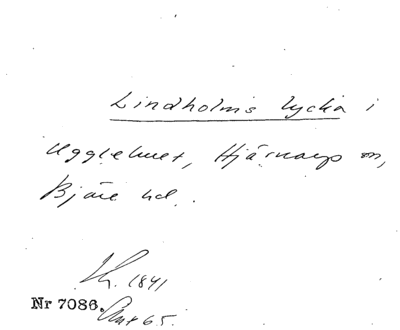 Lindholms lycka i
Ugglehuset, Hjärnarps sn,
Bjäre hd.
1841
Nr 7086.
65.